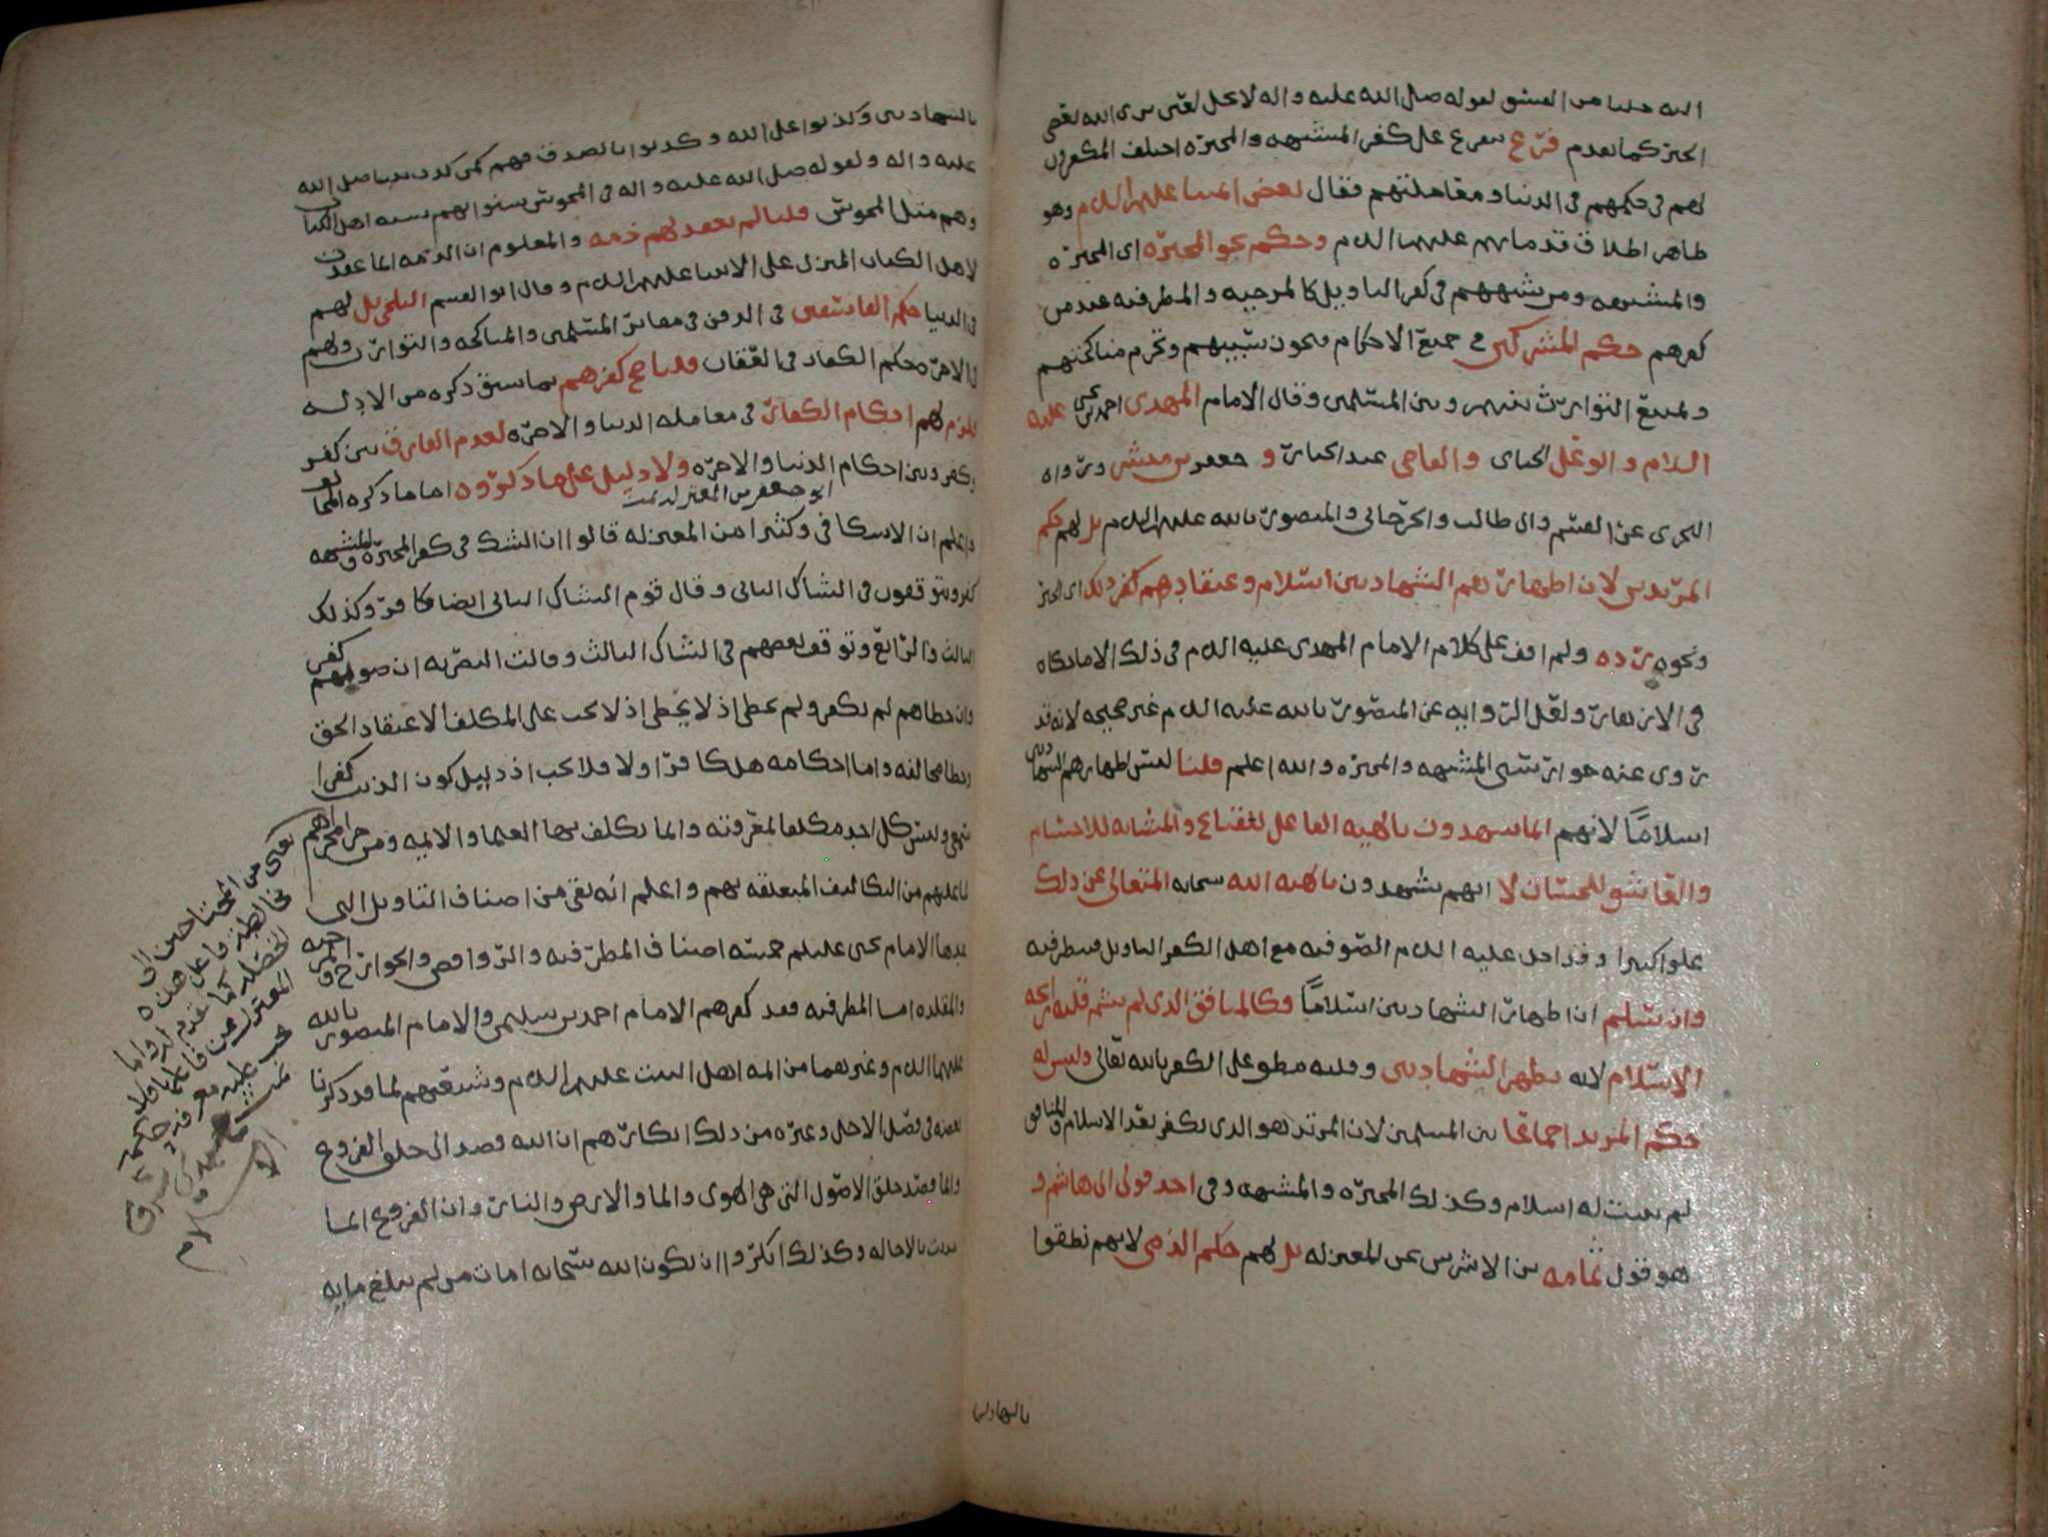 الله جلنا من الفسق لقوله صلى الله عليه واله لا يحل لعين ترى الله يعصى
الخبر كما تقدم فرع يتفرع على كفر المشبهه والمجبره اختلف المكفرون
لهم في حكمهم في الدنيا ومعاملتهم فقال بعض ائمتنا عليهم السلام وهو
ظاهر اطلاق قدمائهم عليهم السلام وحكم نحو المجبره اي المجبره
والمشبهه ومن شبههم في كفر التاويل كالمرجيه والمطرفيه عند من
كفرهم حكم المشركين في جميع الاحكام فيجوز سبيهم وتحرم مناكحتهم
ويمتنع التوارث بينهم وبين المسلمين وقال الامام المهدي احمد بن يحيى عليه
السلام وابو علي الجباي والقاضي عبد الجبار و جعفر بن مبشر ورواه
البحري عن القسم وابي طالب والجرجاني والمنصور بالله عليهم السلام بل لهم حكم
المرتدين لان اظهارهم الشهادتين اسلام وعتقادهم كفر ذلك اي الجبر
ونحوه رده ولم اقف على كلام الامام المهدي عليه السلام في ذلك الا ما حكاه
في الازهار ولعل الروايه عن المنصور بالله عليه السلام غير صحيحه لانه قد
روى عنه جواز سبي المشبهه والمجبره والله اعلم قلنا ليس اظهارهم الشهادتين
اسلاماً لانهم انما يشهدون بالهيه الفاعل للقبايح والمشابه للاجسام
والعاشق للحسان لا انهم يشهدون بالهيه الله سبحانه المتعالي عن ذلك
علوا كبيرا وقد ادخل عليه السلام الصوفيه مع اهل الكفر التاويل فينظر فيه
وان سلم ان اظهار الشهادتين اسلاماً فكالمنافق الذي لم يشم قلبه رائحه
الاسلام لانه يظهر الشهادتين وقلبه مطو على الكفر بالله تعالى وليس له
حكم المرتد اجماعا بين المسلمين لان المرتد هو الذي يكفر بعد الاسلام والمنافق
لم يثبت له اسلام وكذلك المجبره والمشبهه وفي احد قولي ابي هاشم و
هو قول ثمامه بن الاشرس من المعتزله بل لهم حكم الذمي لانهم نطقوا
بالشهادتين
بالشهادتين وكذبوا على الله وكذبوا بالصدق فهم كمن كذب نبينا صلى الله
عليه واله ولقوله صلى الله عليه واله في المجوس سنوا بهم سنه اهل الكتاب
وهم مثل المجوس قلنا لم تعقد لهم ذمه والمعلوم ان الذمه انما عقدت
لاهل الكتاب المنزل على الانبيا عليهم السلام وقال ابو القسم البلخي بل لهم
في الدنيا حكم الفاسقين في الدفن في مقابر المسلمين والمناكحه والتوارث ولهم
في الاخره حكم الكفار في العقاب قلنا صح كفرهم بما سبق ذكره من الادله
فلزم لهم احكام الكفار في معامله الدنيا والاخره لعدم الفارق بين كفر
وكفر وبين احكام الدنيا والاخره ولا دليل على ما ذكروه اماما ذكره المخالف
ابو جعفر من المعتزله تمت
واعلم ان الاسكافي وكثيرا من المعتزله قالوا ان الشك في كفر المجبره والمشبهه
كفر ويتوقفون في الشاك الثاني وقال قوم الشاك الثاني ايضا كافر وكذلك
الثالث والرابع وتوقف بعضهم في الشاك الثالث وقالت البصريه ان صوبهم كفر
وان خطاهم لم يكفر ولم يخطي اذ لا يخطي اذ لا يجب على المكلف الا اعتقاد الحق
وخطا مخالفه واما احكامه هل كافر او لا فلا يجب اذ دليل كون الذنب كفرا
سمعي وليس كل احد مكلفا لمعرفته وانما يكلف بها العلما والايمه ومن جرا مجراهم
لما عليهم من التكاليف المتعلقه بهم واعلم انه بقي من اصناف التاويل التي
عدها الامام يحيى عليلم خمسه اصناف المطرفيه والروافض والخوارج والمرجيه
والمقلده اما المطرفيه فقد كفرهم الامام احمد بن سليمن والامام المنصور بالله
عليهما السلام وغيرهما من ائمه اهل البيت عليهم السلام وشيعتهم لما قد ذكرنا
بعضه في فصل الاجل وغيره من ذلك انكارهم ان الله قصد الى خلق الفروع
وانما قصد خلق الاصول التي هي الهوى والما والارض والنار وان الفروع انما
حدثت بالاحاله وكذلك انكروا ان يكون الله سبحانه امات من لم يبلغ مايه